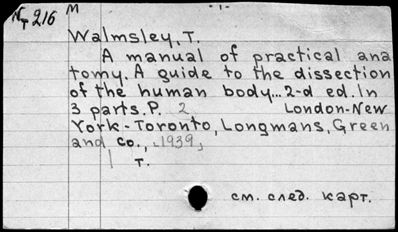 N₇ 216
M
Walmsley, T.
A manual of practical ana
tomy. A guide to the dissection
of the human body... 2-d ed. In
3 parts. P. 2 London-New
York-Toronto, Longmans, Green
and co., 1939,
т.
см. след. карт.